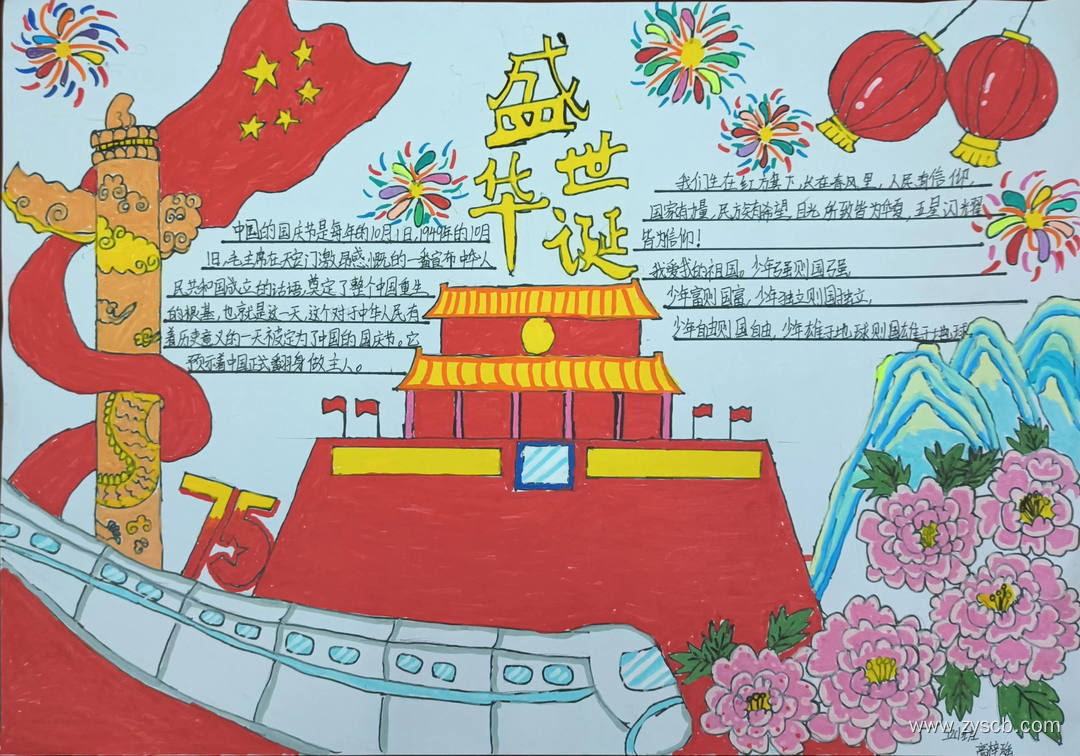 盛世
华诞
中国的国庆节是每年的10月1日,1949年的10月
1日,毛主席在天安门激昂感慨的一番宣布中华人
民共和国成立的话语,奠定了整个中国重生
的根基,也就是这一天,这个对于中华人民有
着历史意义的一天被定为了中国的国庆节。它
预示着中国正式翻身做主人。
我们生在红旗下,长在春风里,人民有信仰,
国家有力量,民族有希望,目光所致皆为华夏,五星闪耀
皆为信仰!
我爱我的祖国。少年强则国强
少年富则国富,少年独立则国独立,
少年自由则国自由,少年雄于地球则国雄于地球.
75
www.zyscb.com